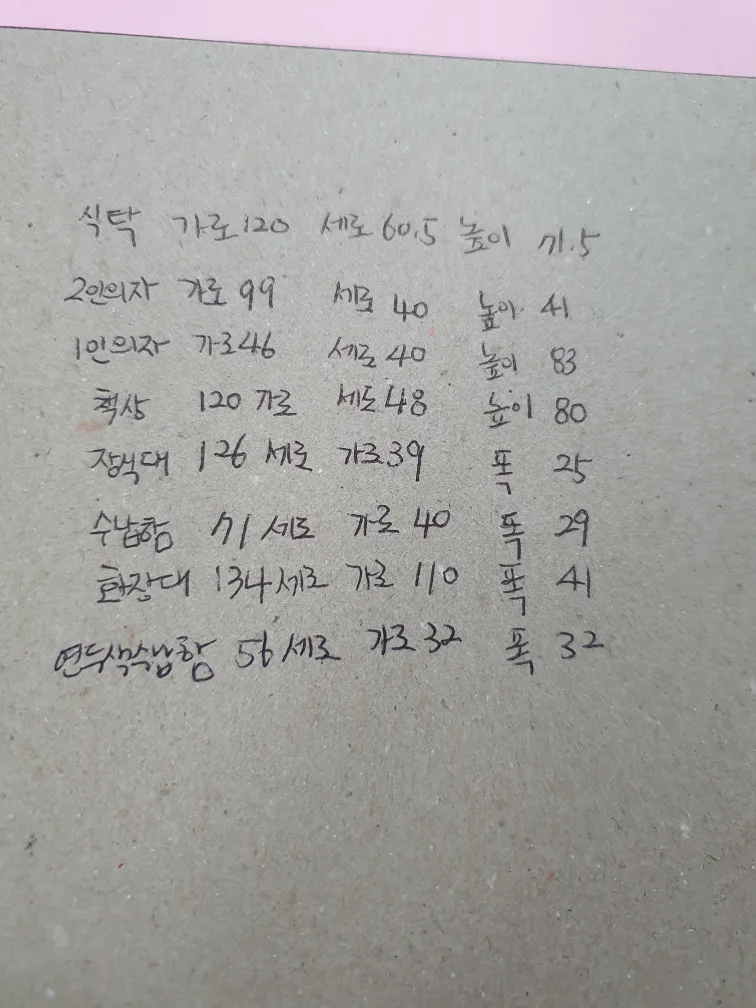 식탁 가로 120 세로 60.5 높이 71.5
2인의자 가로 99 세로 40 높이 41
1인의자 가로 46 세로 40 높이 83
책상 120 가로 세로 48 높이 80
장식대 126 세로 가로 39 폭 25
수납함 71 세로 가로 40 폭 29
화장대 134 세로 가로 110 폭 41
연두색수납함 56 세로 가로 32 폭 32